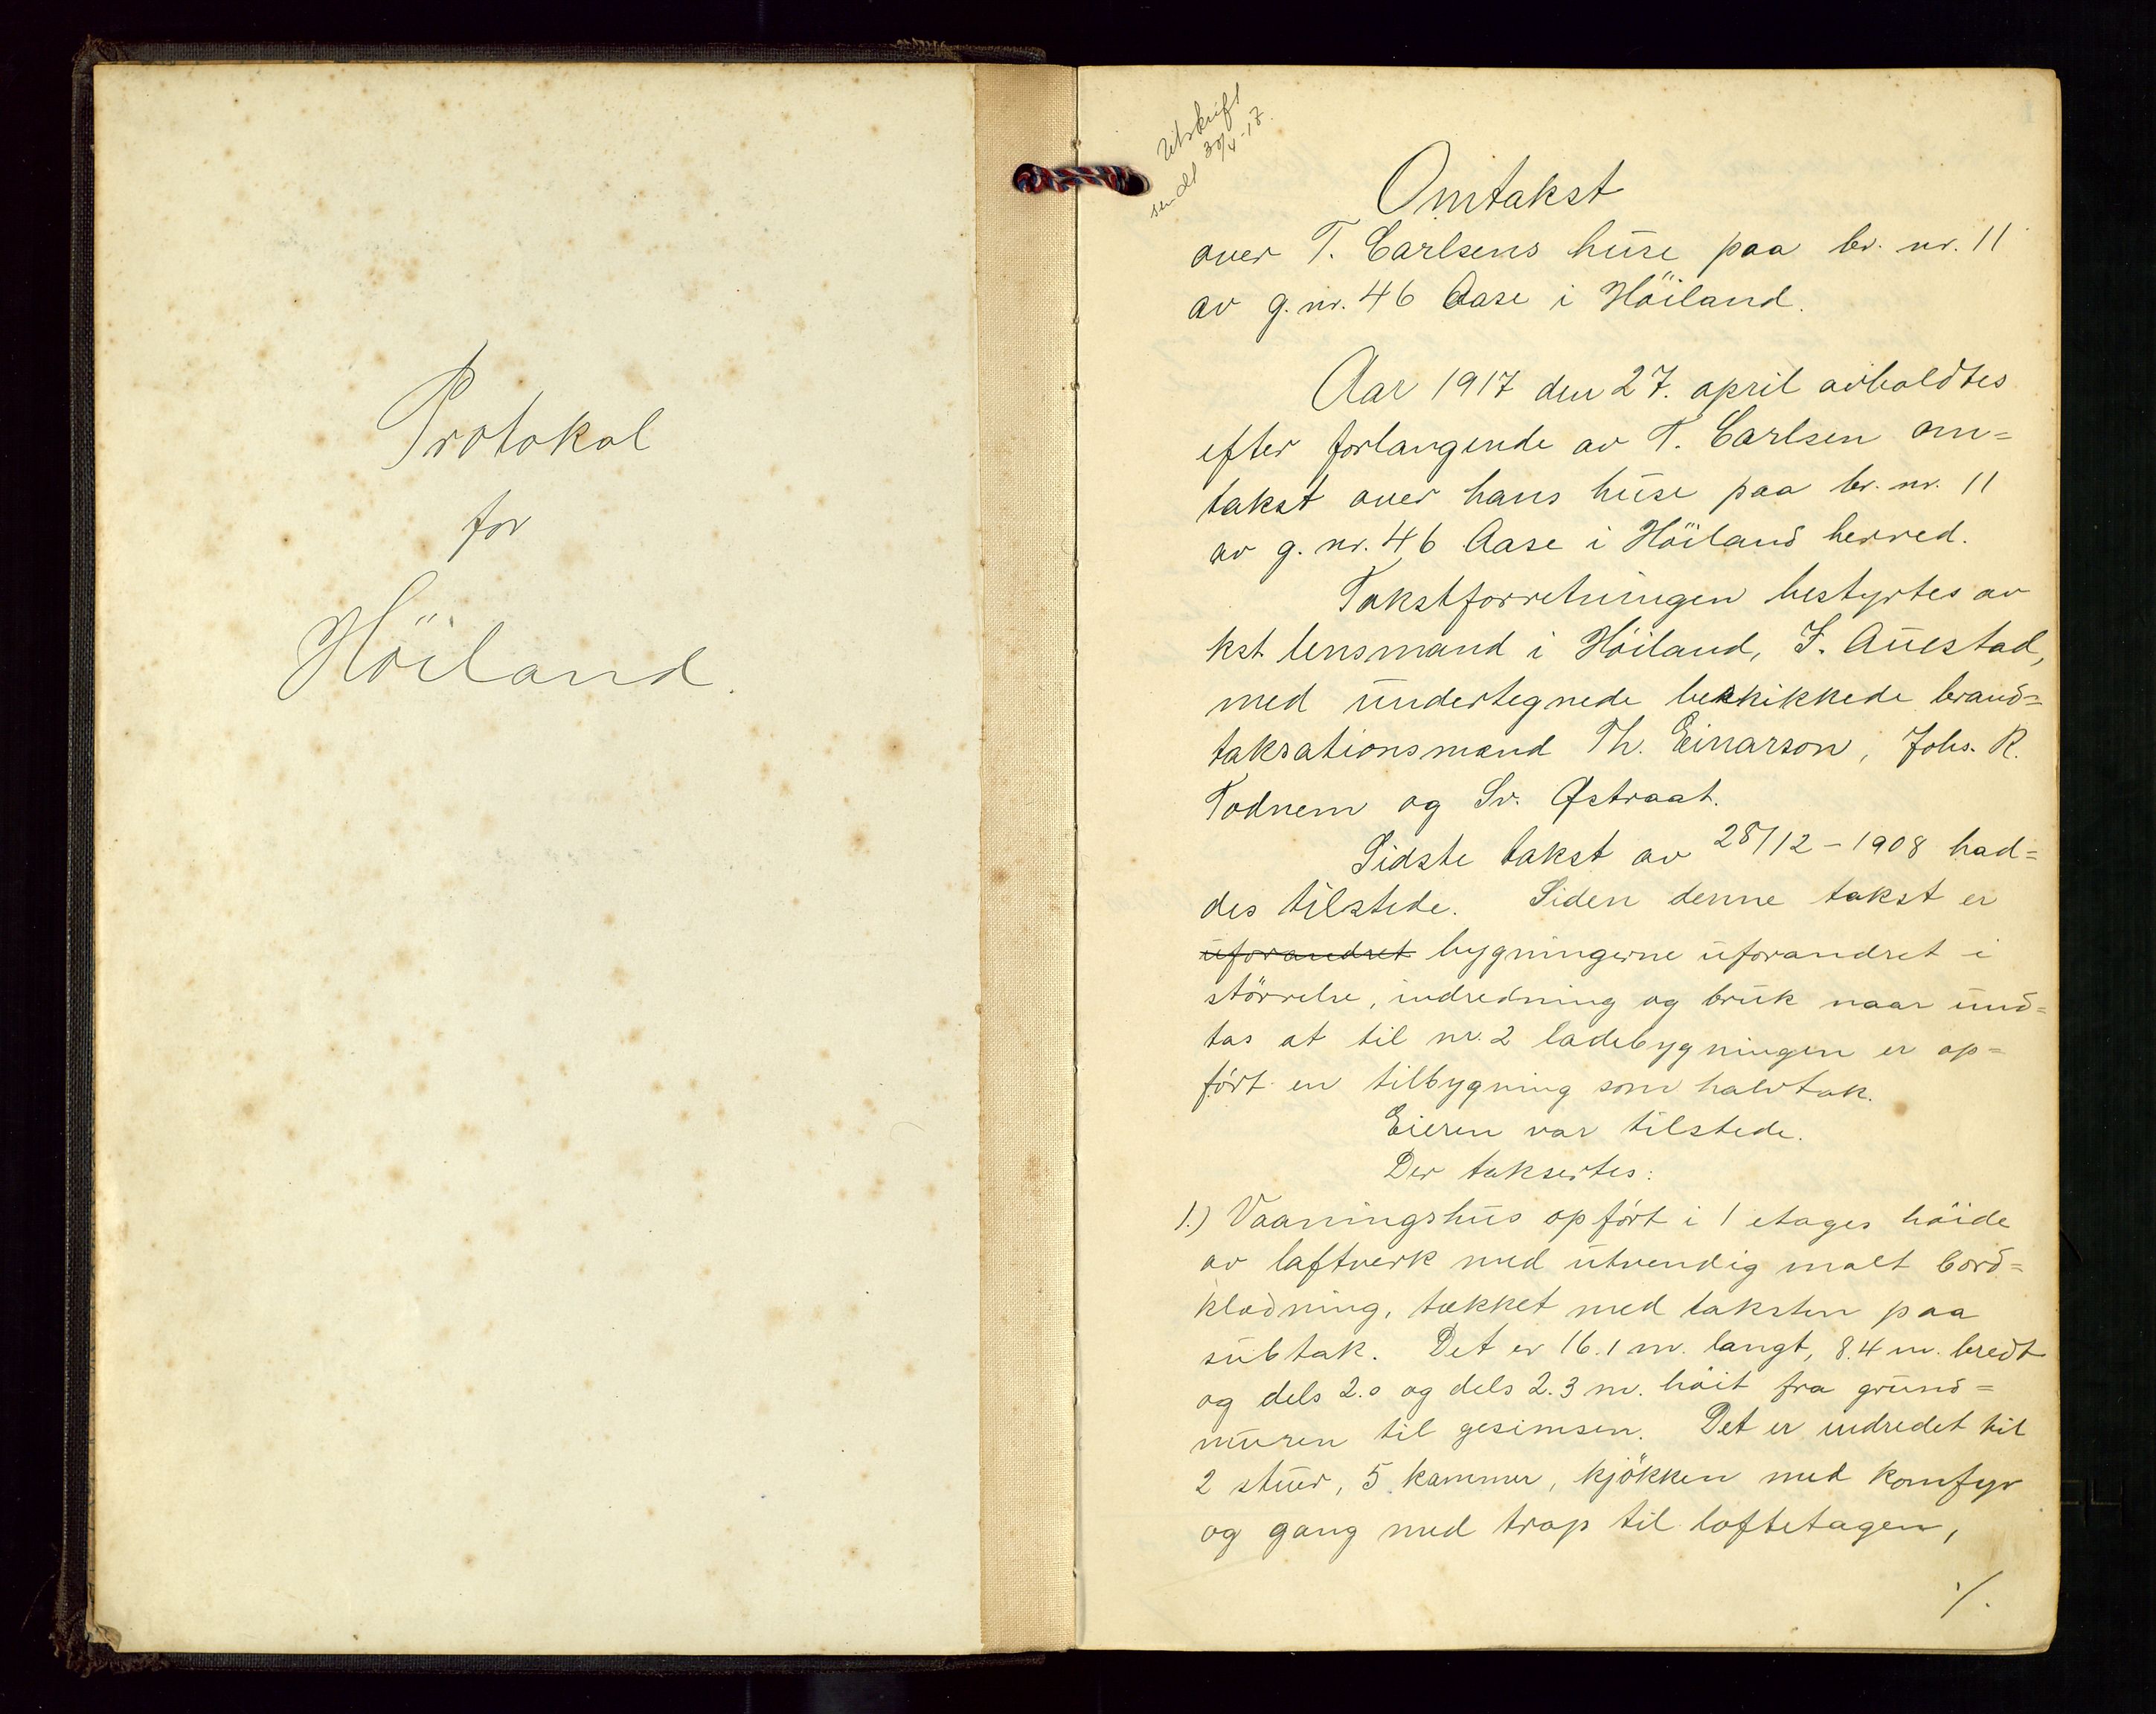 Protokol
for
Höiland.
Utskrift
sendt 30/4-17.
Omtakst
over T. Carlsens huse paa br. nr. 11
av g. nr. 46 Aase i Höiland.
Aar 1917 den 27. april avholdtes
efter forlangende av T. Carlsen om=
takst over hans huse paa br. nr. 11
av g. nr. 46 Aase i Höiland herred.
Takstforretningen bestyrtes av
kst. lensmand i Höiland, F. Auestad,
med undertegnede beskikkede brand=
taksationsmænd Th. Einarson, Johs. R.
Todnem og Sv. Østraat.
Sidste takst av 28/12 - 1908 had=
des tilstede. Siden denne takst er
uforandret bygningerne uforandret i
störrelse, indredning og bruk naar und=
tas at til nr. 2 ladebygningen er op=
fört en tilbygning som halvtak.
Eieren var tilstede.
Der taksertes:
1.) Vaaningshus opfört i 1 etages höide
av laftverk med utvendig malt bord=
klædning, tækket med taksten paa
subtak. Det er 16.1 m. langt, 8.4 m. bredt
og dels 2.0 og dels 2.3 m. höit fra grund=
muren til gesimsen. Det er indredet til
2 stuer, 5 kammer, kjökken med komfyr
og gang med trap til loftetagen,
./.